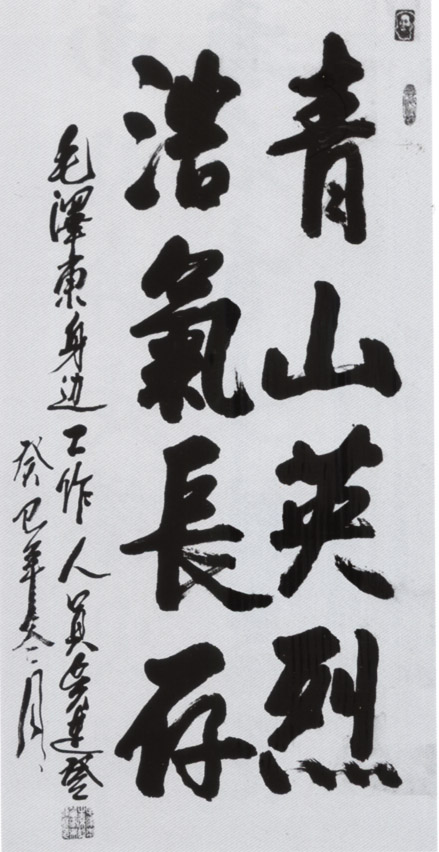 青山英烈
浩氣長存
毛澤東身边工作人員吴連登
癸巳年 月